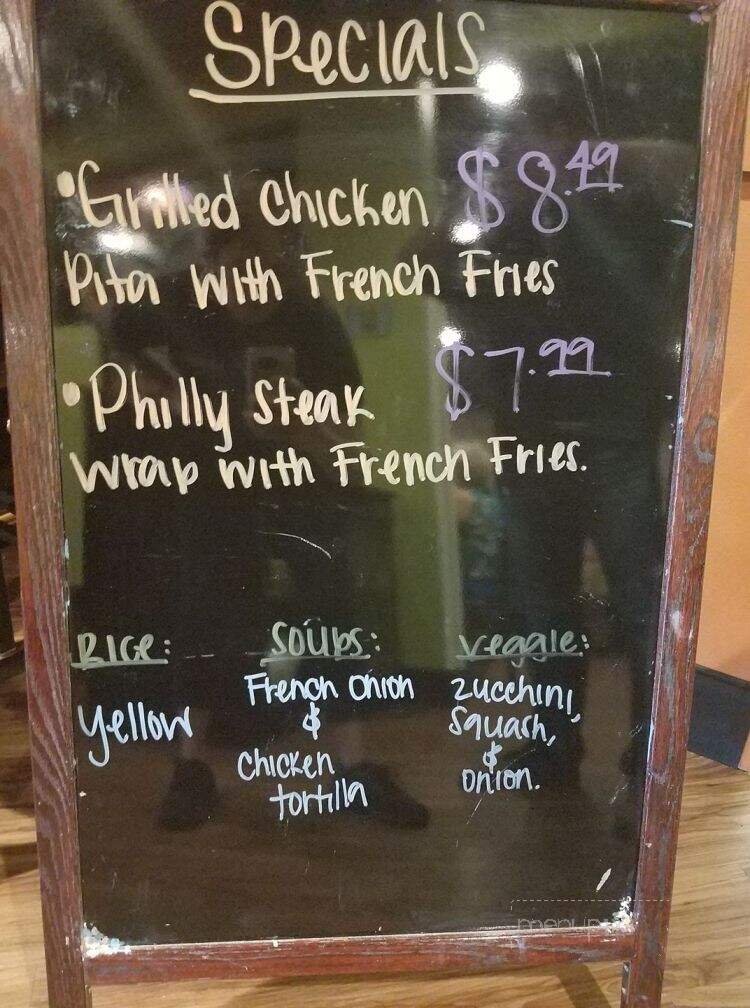 Specials
•Grilled Chicken $8.49
Pita with French Fries
•Philly Steak $7.99
Wrap with French Fries.
Rice:
Yellow
Soups:
French Onion
&
Chicken
tortilla
Veggie:
Zucchini,
Squash,
&
Onion.